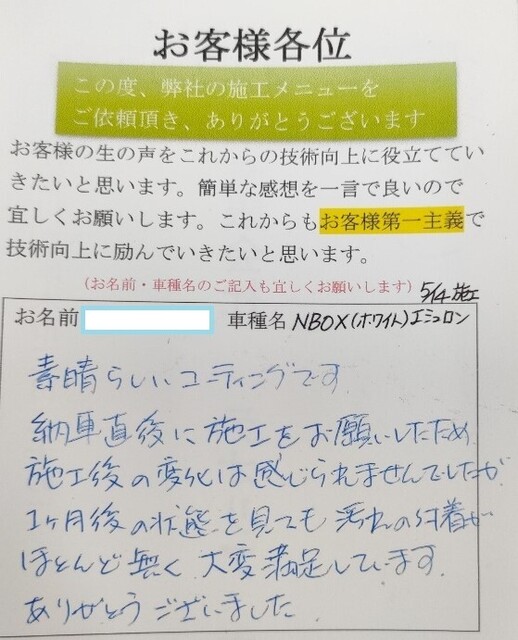 お客様各位
この度、弊社の施工メニューを
ご依頼頂き、ありがとうございます
お客様の生の声をこれからの技術向上に役立ててい
きたいと思います。簡単な感想を一言で良いので
宜しくお願いします。これからもお客様第一主義で
技術向上に励んでいきたいと思います。
(お名前・車種名のご記入も宜しくお願いします) 5/4 施工
お名前 車種名 NBOX(ホワイト)エシュロン
素晴らしいコーティングです
納車直後に施工をお願いしたため
施工後の変化は感じられませんでしたが
1ヶ月後の状態を見ても汚れの付着が
ほとんど無く大変満足しています
ありがとうございました